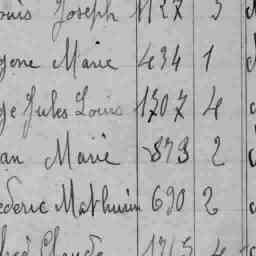 ouis Joseph 1127 3
gene Marie 434 1
ge Jules Louis 1707 4
an Marie 873 2
ederic Mathurin 690 2
Claude 1715 4